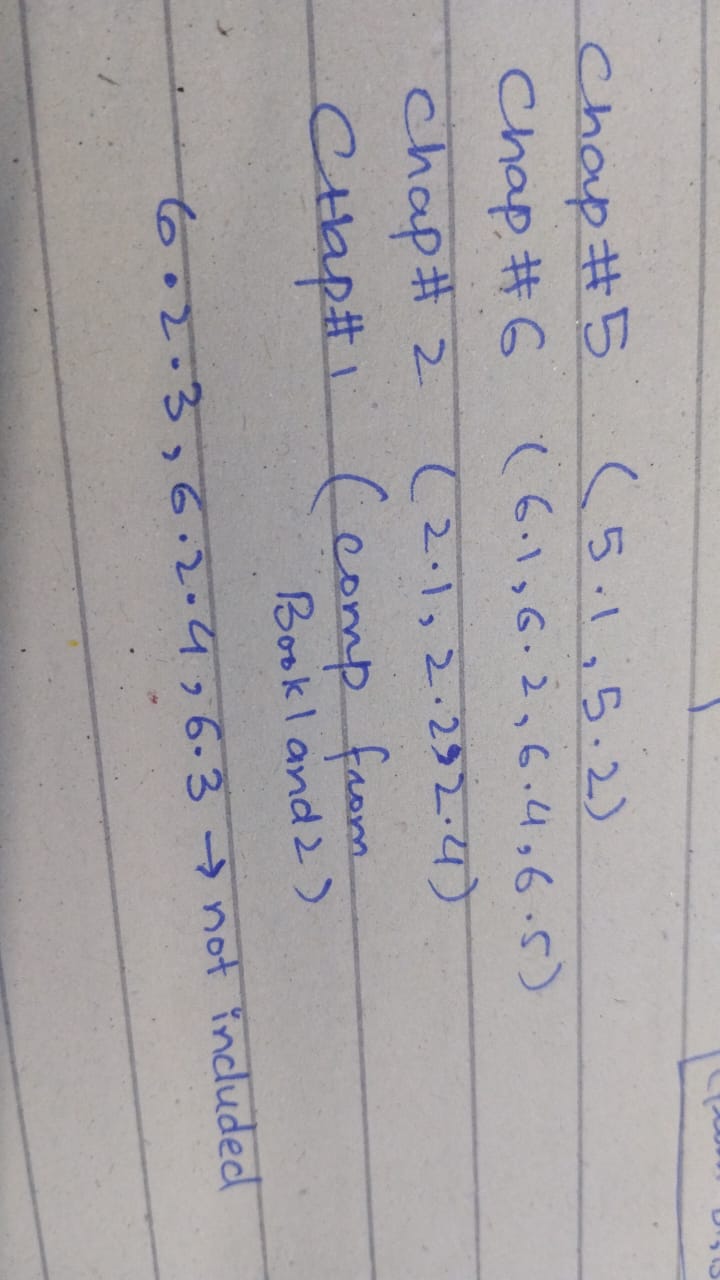 Chap #5 (5.1, 5.2)
Chap #6 (6.1, 6.2, 6.4, 6.5)
Chap# 2 (2.1, 2.2, 2.4)
CHap#1 (comp from
Book1 and 2)
6.2.3, 6.2.4, 6.3 → not included